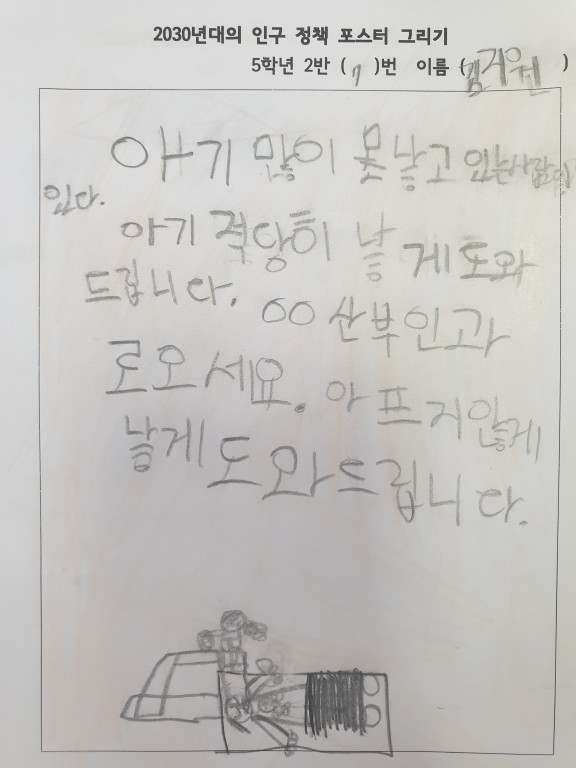 2030년대의 인구 정책 포스터 그리기
5학년 2반 ( 7 )번 이름 (김지원 )
아기 많이 못낳고 있는사람이
있다.
아기 적당히 낳게 도와
드립니다. OO 산부인과
로오세요. 아프지않게
낳게 도와드립니다.